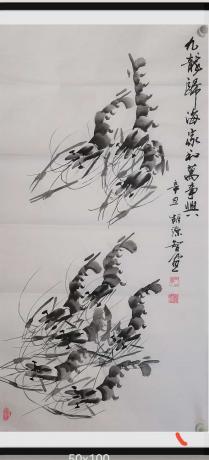 九龍歸海家和萬事興
辛丑 胡源智画
50x100